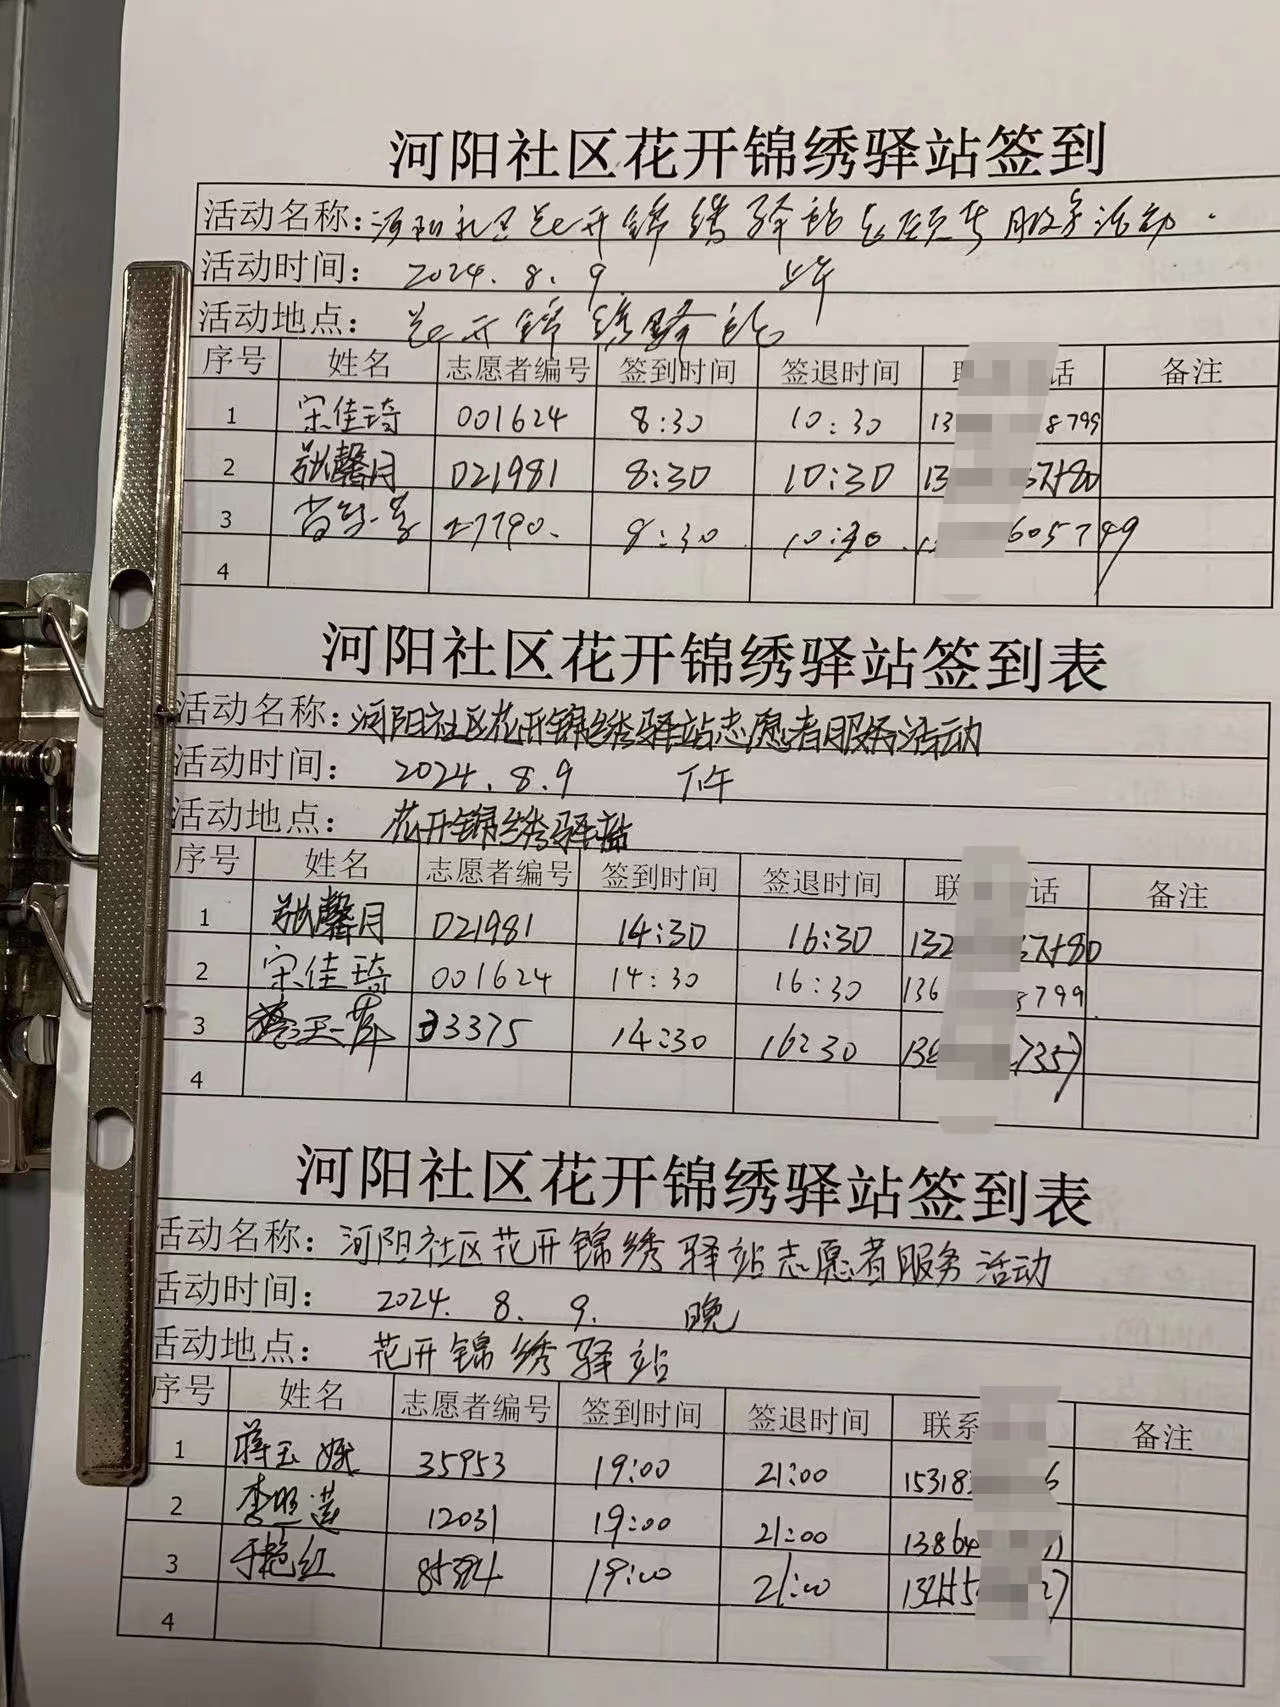 河阳社区花开锦绣驿站签到
活动名称：河阳社区花开锦绣驿站志愿者服务活动.
活动时间： 2024.8.9 上午
活动地点： 花开锦绣驿站
序号 姓名 志愿者编号 签到时间 签退时间 话 备注
1 宋佳琦 001624 8:30 10:30 13 8799
2 张馨月 021981 8:30 10:30 13
3 8:30 10:30 605749
4
河阳社区花开锦绣驿站签到表
活动名称：河阳社区花开锦绣驿站志愿者服务活动
活动时间： 2024.8.9 下午
活动地点： 花开锦绣驿站
序号 姓名 志愿者编号 签到时间 签退时间 联 话 备注
1 张馨月 021981 14:30 16:30 132
2 宋佳琦 001624 14:30 16:30 136 8799
3 33375 14:30 16:30 136 7357
4
河阳社区花开锦绣驿站签到表
活动名称：河阳社区花开锦绣驿站志愿者服务活动
活动时间： 2024. 8. 9. 晚
活动地点： 花开锦绣驿站
序号 姓名 志愿者编号 签到时间 签退时间 联系 备注
1 蒋玉 35953 19:00 21:00 15318 6
2 李 莲 12031 19:00 21:00 13864 1
3 于艳红 19:00 21:00 7
4